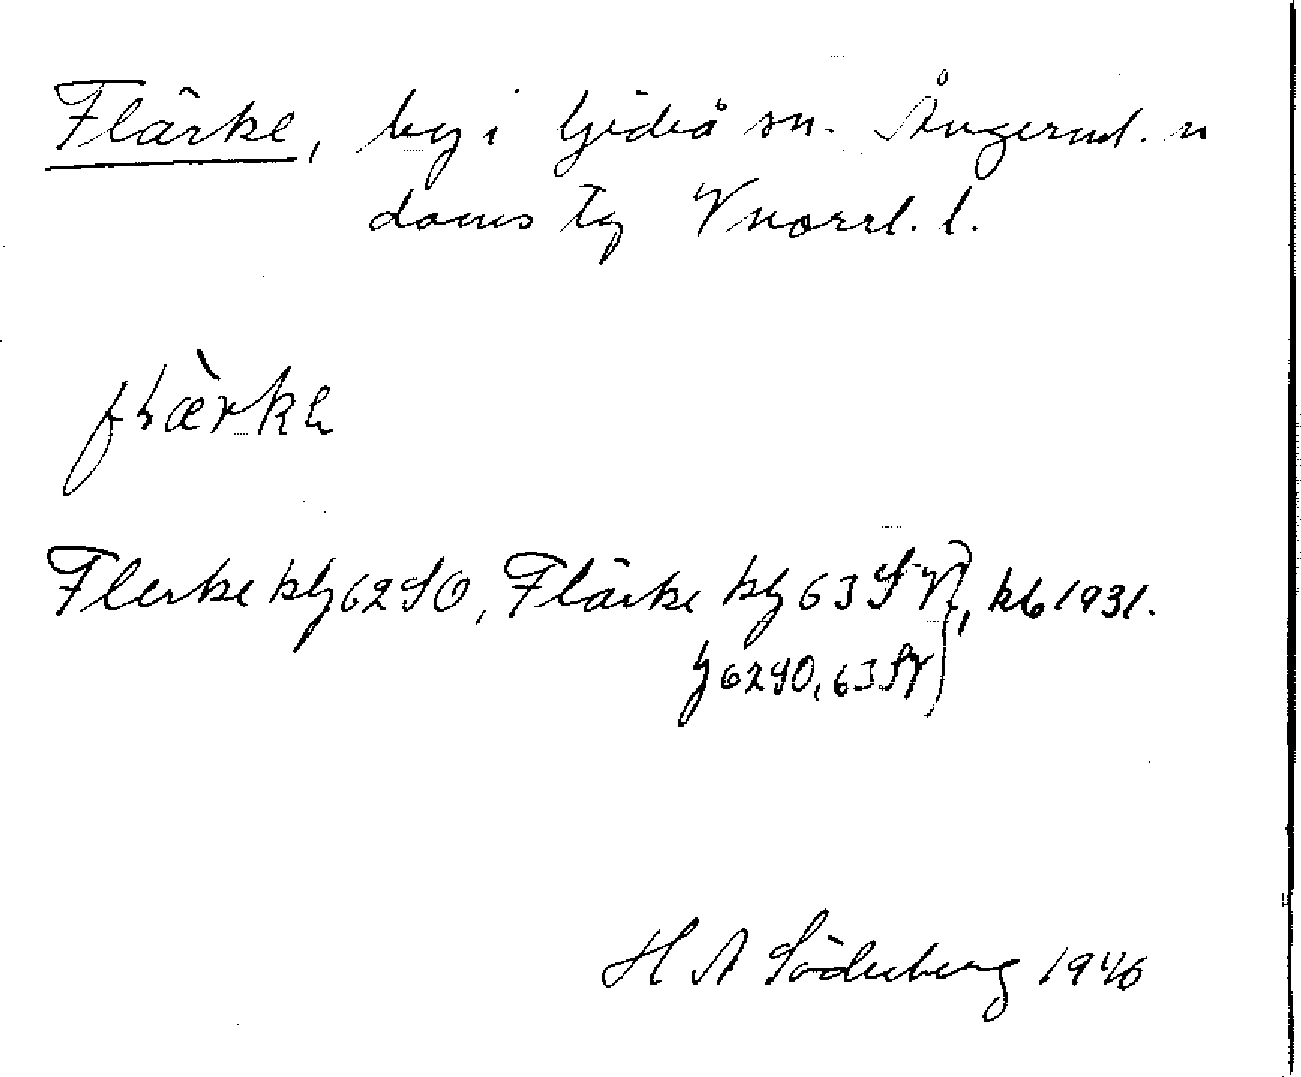 Flärke, by i Gideå sn. Ångerml. n
doms tg Vnorrl. l.
flæ̀rkɛ
Flerke kg 62 SO, Flärke kg 63 SV, kb 1931.
g 62 SO, 63 SV
H A Söderberg 1946